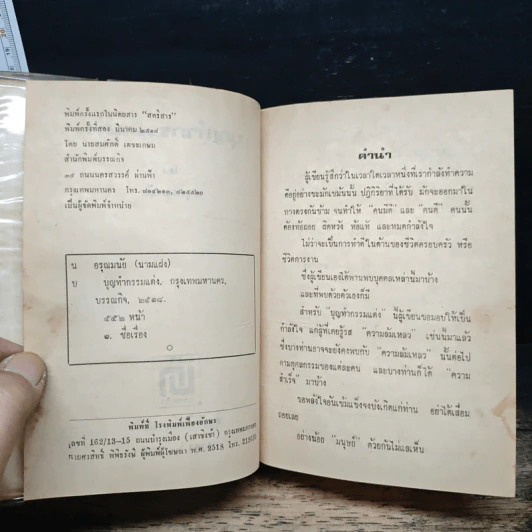 พิมพ์ครั้งแรกในนิตยสาร "สตรีสาร"
พิมพ์ครั้งที่สอง มีนาคม ๒๕๑๘
โดย นายสมศักดิ์ เตชะเกษม
สำนักพิมพ์บรรณกิจ
๓๙ ถนนนครสวรรค์ ผ่านฟ้า
กรุงเทพมหานคร โทร.
เป็นผู้จัดพิมพ์จำหน่าย
น อรุณมนัย (นามแฝง)
บ บุญทำกรรมแต่ง. กรุงเทพมหานคร,
บรรณกิจ, ๒๕๑๘.
๕๕๒ หน้า
๑. ชื่อเรื่อง
พิมพ์ที่ โรงพิมพ์เฟื่องอักษร
เลขที่ 162/13-15 ถนนบำรุงเมือง (เสาชิงช้า) กรุงเทพมหานคร
ผู้พิมพ์ผู้โฆษณา พ.ศ. 2518 โทร.
คำนำ
ผู้เขียนรู้สึกว่าในเวลาใดเวลาหนึ่งที่เรากำลังทำความ
ดีอยู่อย่างขะมักเขม้นนั้น ปฏิกิริยาที่ได้รับ มักจะออกมาใน
ทางตรงกันข้าม จนทำให้ "คนมีดี" และ "คนดี" คนนั้น
ต้องท้อถอย ผิดหวัง ท้อแท้ และหมดกำลังใจ
ไม่ว่าจะเป็นการทำดีในด้านของชีวิตครอบครัว หรือ
ชีวิตการงาน
ซึ่งผู้เขียนเองได้พานพบบุคคลเหล่านี้มาบ้าง
และที่พบด้วยตัวเองก็มี
สำหรับ "บุญทำกรรมแต่ง" นี้ผู้เขียนขอมอบให้เป็น
กำลังใจ แก่ผู้ที่เคยรู้รส "ความล้มเหลว" เช่นนี้มาแล้ว
ซึ่งบางท่านอาจจะยังคงพบกับ "ความล้มเหลว" นั้นต่อไป
ตามอุดกรรมของแต่ละคน และบางท่านก็ได้ "ความ
สำเร็จ" มาบ้าง
ขอพลังใจอันเข้มแข็งจงบังเกิดแก่ท่าน อย่าได้เสื่อม
ถอยเลย
อย่างน้อย "มนุษย์" ด้วยกันไม่แลเห็น